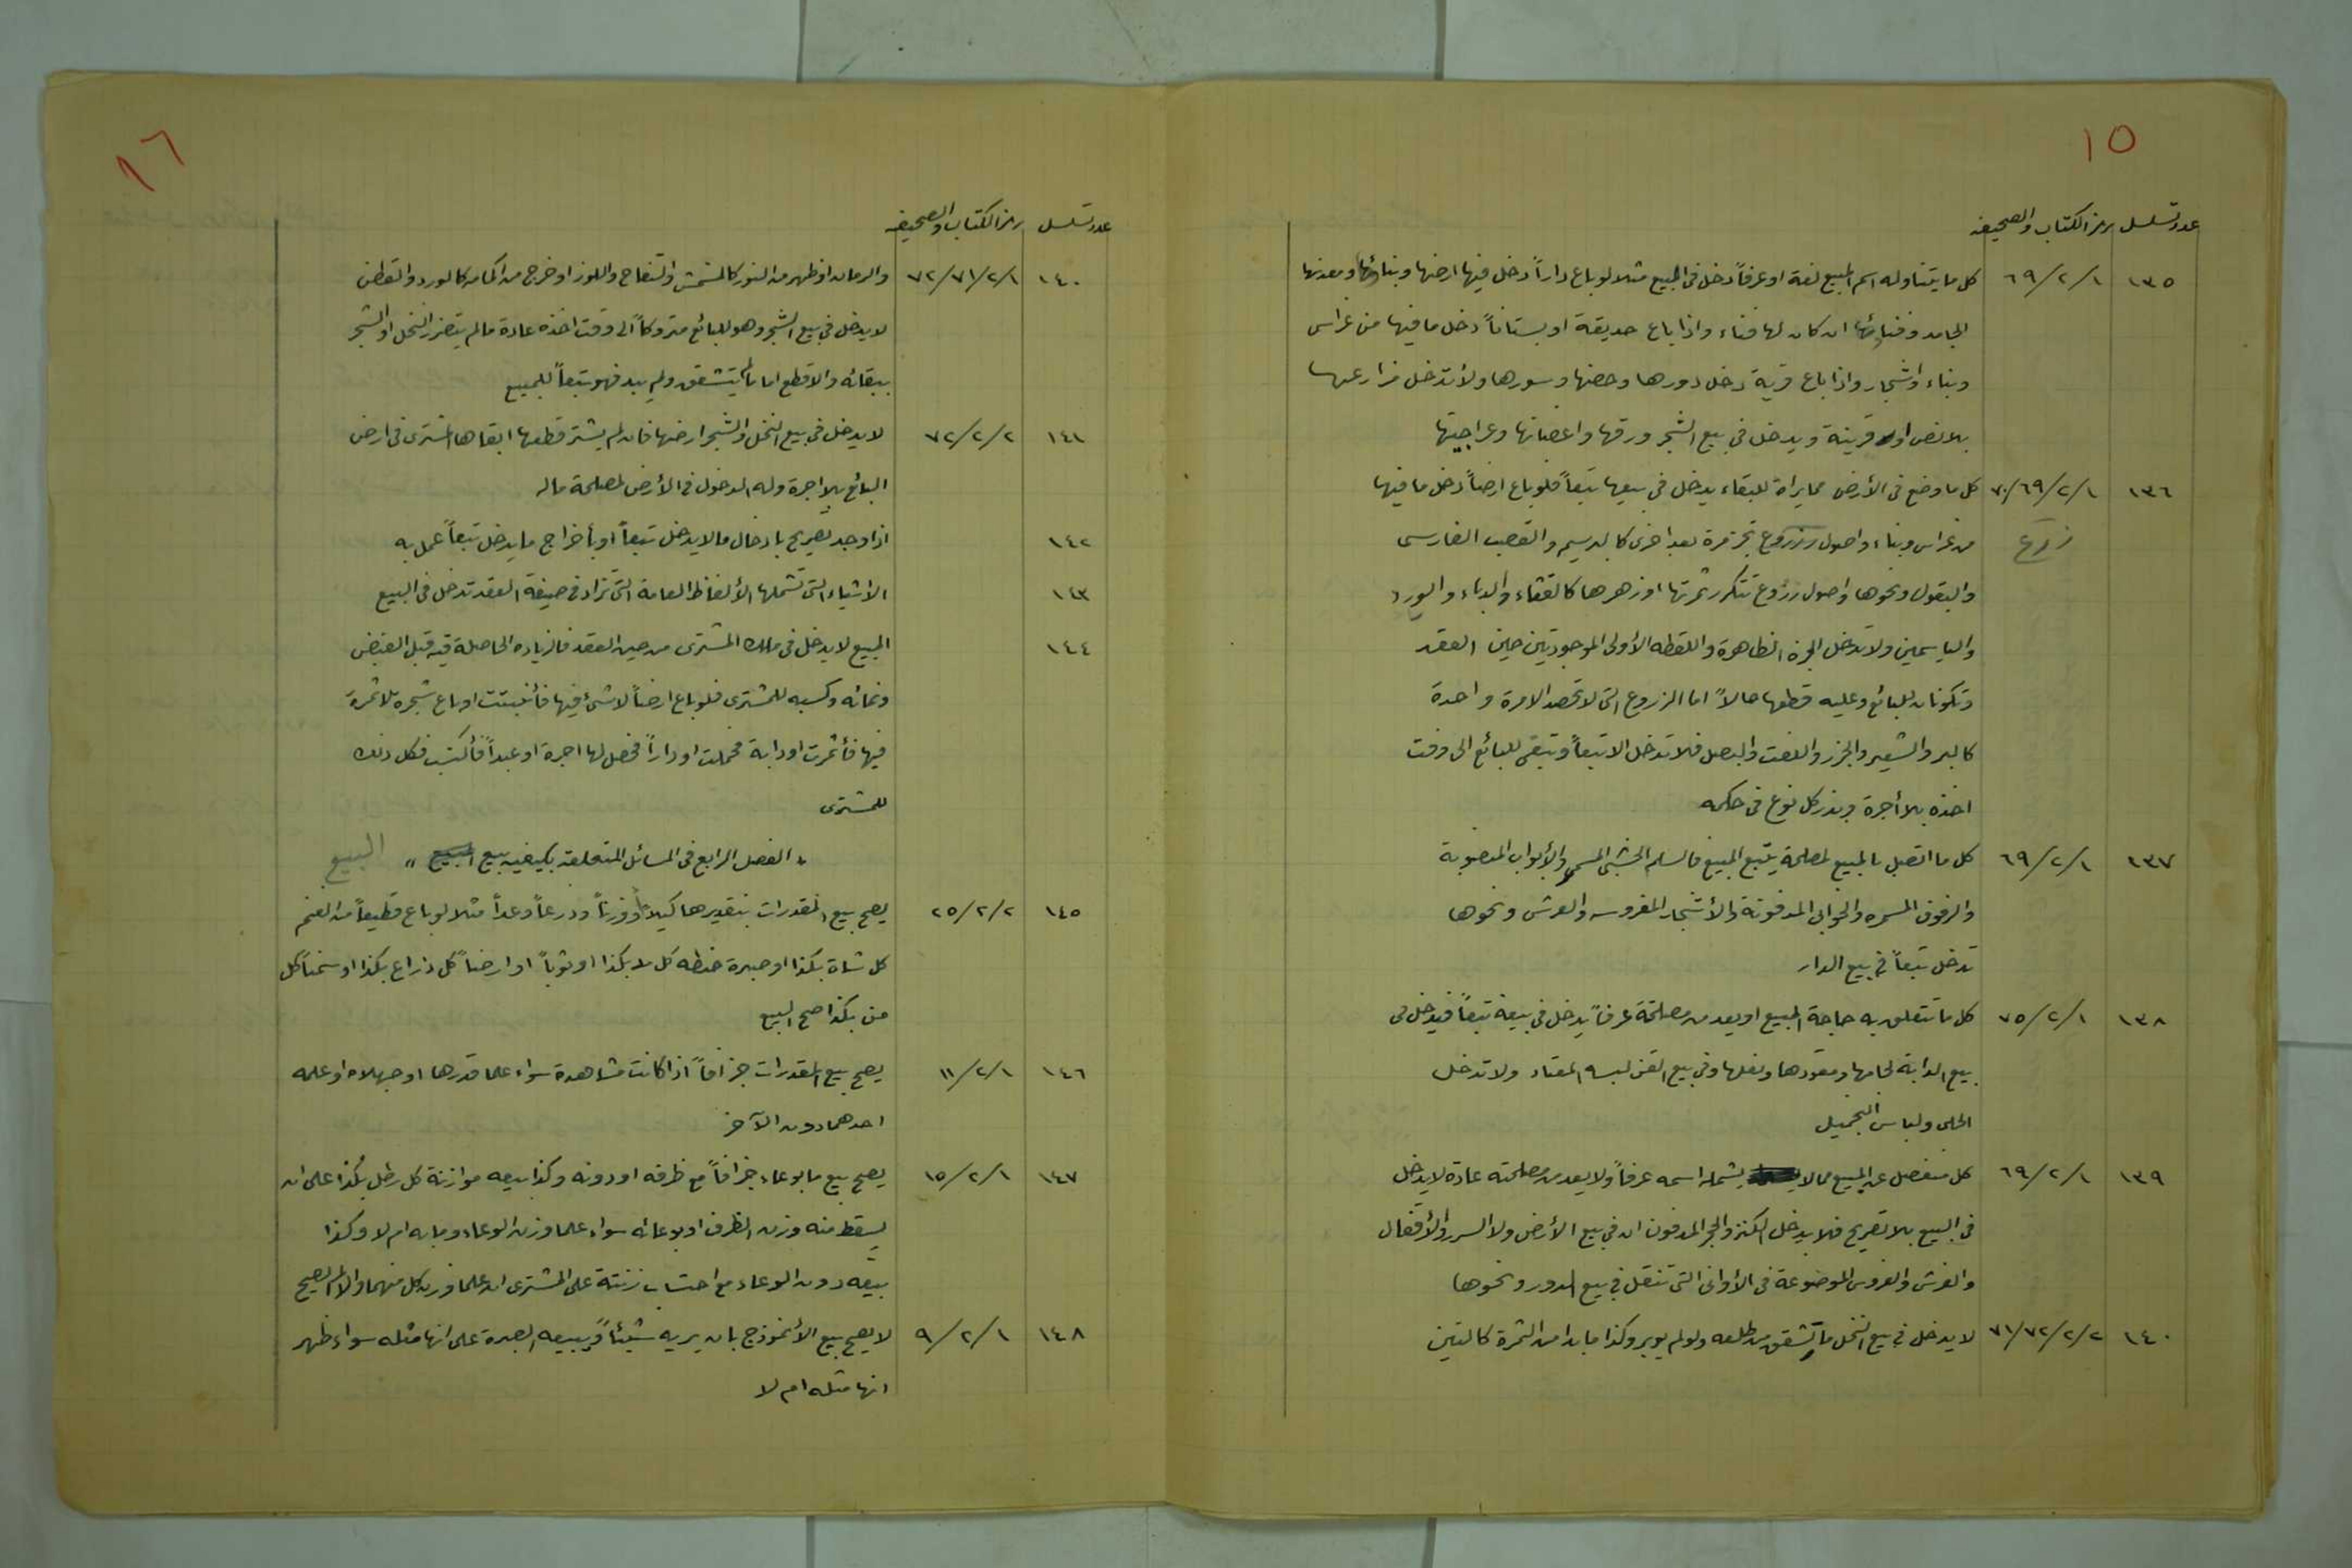 ١٥
عدد تسلسل رمز الكتاب والصحيفه
١٣٥ ٦٩/٢/١ كل ما يتناوله اسم المبيع لغة او عرفاً دخل في المبيع مثلا لو باع داراً دخل فيها ارضها وبناؤها ومعدنها
الجامد وفناؤها ان كان لها فناء واذا باع حديقة او بستاناً دخل ما فيها من غراس
وبناء واشجار واذا باع قرية دخل دورها وحصنها وسورها ولا تدخل مزارعها
بلا نص او قرينة ويدخل في بيع الشجر ورقها واغصانها وعراجينها
١٣٦ ٧٠/٦٩/٢/١ كل ما وضع في الأرض مما يراد للبقاء يدخل في بيعها تبعاً فلو باع ارضاً دخل ما فيها
زروع من غراس وبناء واصول زروع تجز مرة بعد اخرى كالبرسيم والقصب الفارسي
والبقول ونحوها واصول زروع تتكرر ثمرتها او زهرها كالقثاء والدباء والورد
والياسمين ولا تدخل الجزة الظاهرة واللقطه الأولى الموجوديتين حين العقد
وتكونان للبائع وعليه قطعها حالاً اما الزروع التي لا تحصد الا مرة واحدة
كالبر والشعير والجزر واللفت والبصل فلا تدخل الا تبعاً وتبقى للبائع الى وقت
اخذه بلا أجرة وبذر كل نوع في حكمه
١٣٧ ٦٩/٢/١ كل ما اتصل بالمبيع لمصلحة يتبع المبيع فالسلم الخشبي المسمر والأبواب المنصوبة
والرفوف المسمره والخوابي المدفونة والأشجار المغروسه والعرش ونحوها
تدخل تبعاً في بيع الدار
١٣٨ ٧٥/٢/١ كل ما تتعلق به حاجة المبيع او يعد من مصلحته عرفاً يدخل في بيعه تبعاً فيدخل في
بيع الدابة لجامها ومقودها ونعلها وفي بيع القن لبسه المعتاد ولا تدخل
الحلى ولباس التجميل
١٣٩ ٦٩/٢/١ كل منفصل عن المبيع مما لا يشمله اسمه عرفاً ولا يعد من مصلحته عادة لا يدخل
في البيع بلا تصريح فلا يدخل الكنز والحجر المدفونان في بيع الأرض ولا السرر والأقفال
والفرش والغروس الموضوعة في الأواني التي تنقل في بيع الدور ونحوها
١٤٠ ٧١/٧٢/٢/٢ لا يدخل في بيع النخل ما تشقق من طلعه ولو لم يوبر وكذا ما بدا من الثمرة كالتين
١٦
عدد تسلسل رمز الكتاب والصحيفه
١٤٠ ٧٢/٧١/٢/١ والرمان او ظهر من النور كالمشمش والتفاح واللوز او خرج من اكمامه كالورد والقطن
لا يدخل في بيع الشجر وهو للبائع متروكاً الى وقت اخذه عادة ما لم يتضرر النخل او الشجر
ببقائه والا قطع اما ما لم يتشقق ولم يبد فهو تبعاً للمبيع
١٤١ ٧٢/٢/٢ لا يدخل في بيع النخل والشجر ارضها فان لم يشتر قطعها ابقاها المشتري في ارض
البائع بلا اجرة وله الدخول في الأرض لمصلحة ماله
١٤٢ اذا وجد تصريح بادخال ما لا يدخل تبعاً او بأخراج ما يدخل تبعاً عمل به
١٤٣ الاشياء التي تشملها الألفاظ العامة التي تزاد في صيغة العقد تدخل في البيع
١٤٤ المبيع لا يدخل في ملك المشتري من حين العقد فالزياده الحاصلة فيه قبل القبض
ونمائه وكسبه للمشتري فلو باع ارضاً لا شئ فيها فأنبتت او باع شجره لا ثمرة
فيها فأثمرت او دابة فحملت او داراً فحصل لها اجرة او عبداً فأكتسب فكل ذلك
للمشتري
" الفصل الرابع في المسائل المتعلقه بكيفيه بيع المبيع " البيع
١٤٥ ٢٥/٢/٢ يصح بيع المقدرات بتقديرها كيلاً او وزناً وذرعاً وعداً مثلا لو باع قطيعاً من الغنم
كل شاة بكذا او صبرة حنطه كل بكذا او ثوباً او ارضاً كل ذراع بكذا او سمناً كل
من بكذا صح البيع
١٤٦ ١١/٢/١ يصح بيع المقدرات جزافاً اذا كانت مشاهدة سواء علما قدرها او جهلاه او علمه
احدهما دون الآخر
١٤٧ ١٥/٢/١ يصح بيع ما بوعاء جزافاً مع ظرفه او دونه وكذا بيعه موازنة كل رطل بكذا على ان
يسقط منه وزن الظرف او بوعائه سواء علما وزن الوعاء وما به ام لا وكذا
بيعه دون الوعاء مع احتساب زنته على المشتري ان علما وزن كل منهما والا لم يصح
١٤٨ ٩/٢/١ لا يصح بيع الأنموذج بان يريه شيئاً ويبيعه الصبرة على انها مثله سواء ظهر
انها مثله ام لا